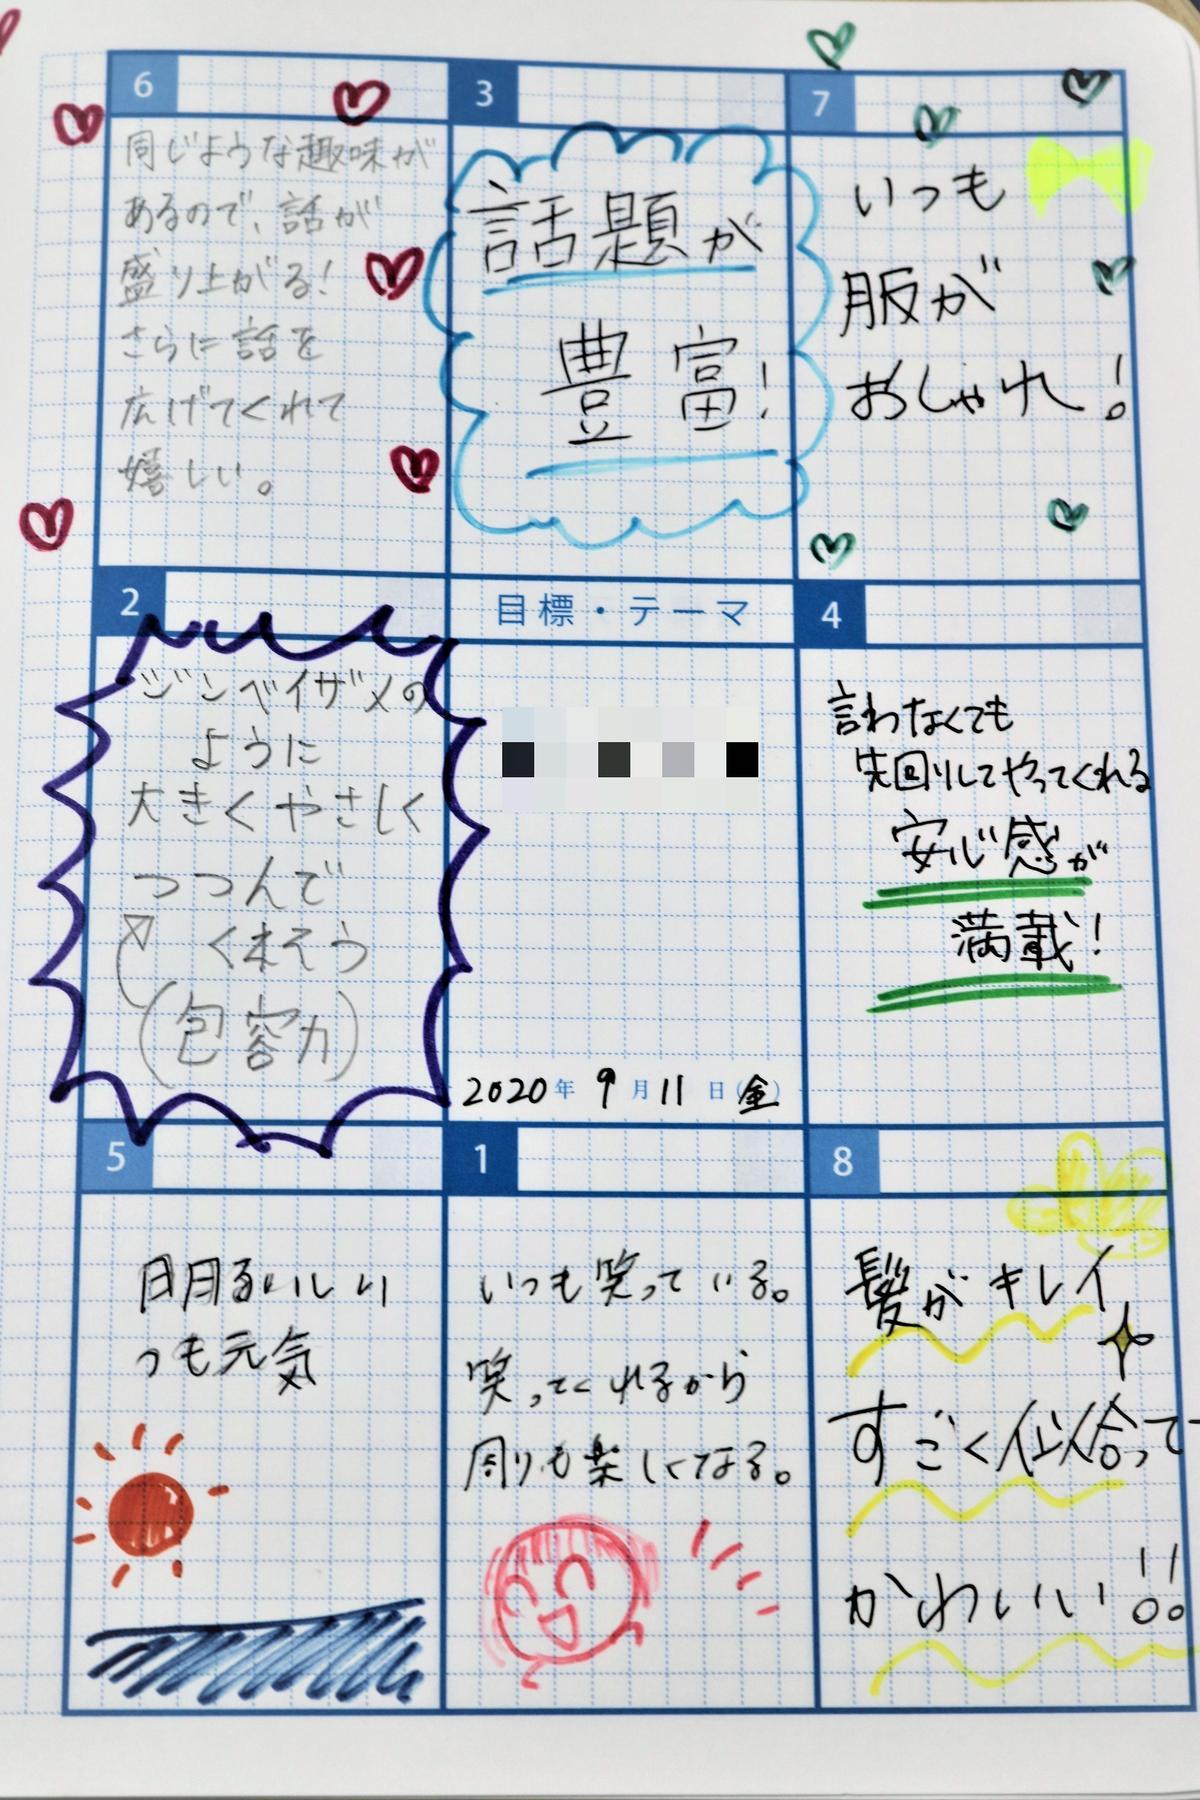 6
同じような趣味が
あるので、話が
盛り上がる!
さらに話を
広げてくれて
嬉しい。
3
話題が
豊富!
7
いつも
服が
おしゃれ!
2
ジンベイザメの
ように
大きくやさしく
つつんで
くれそう
(包容力)
目標・テーマ
2020年 9月11日(金)
4
言わなくても
先回りしてやってくれる
安心感が
満載!
5
明るいしい
つも元気
1
いつも笑っている。
笑ってくれるから
周りも楽しくなる。
8
髪がキレイ
すごく似合って
かわいい!!